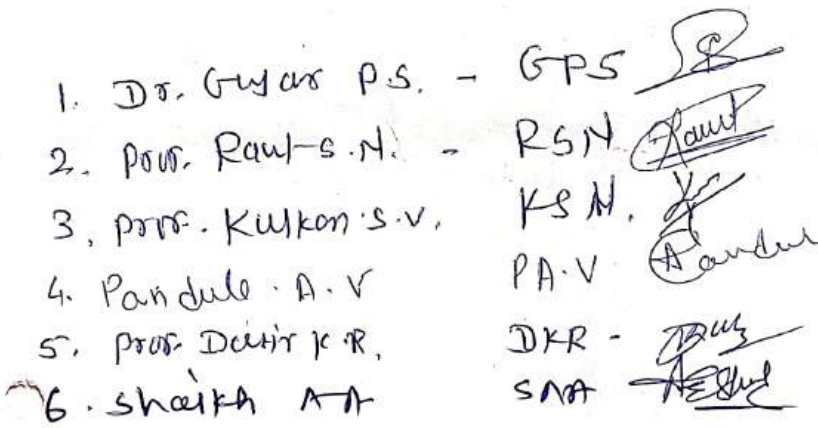 1. Dr. Gujar P.S. - GPS
2. Prof. Raut S.N. - RSN Raut
3. Prof. Kulkarni S.V. KSN.
4. Pandule . A. V PA.V Pandule
5. Prof. Datir K.R. DKR -
6. Shaikh AA SAA